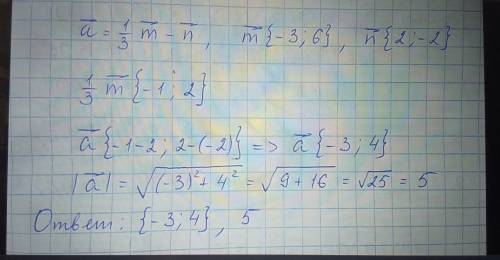 a̅ = 1/3 m̅ − n̅, m̅{-3; 6}, n̅{2; -2}
1/3 m̅{-1; 2}
a̅{-1-2; 2-(-2)} => a̅{-3; 4}
|a̅| = √((-3)² + 4²) = √(9 + 16) = √25 = 5
Ответ: {-3; 4}, 5